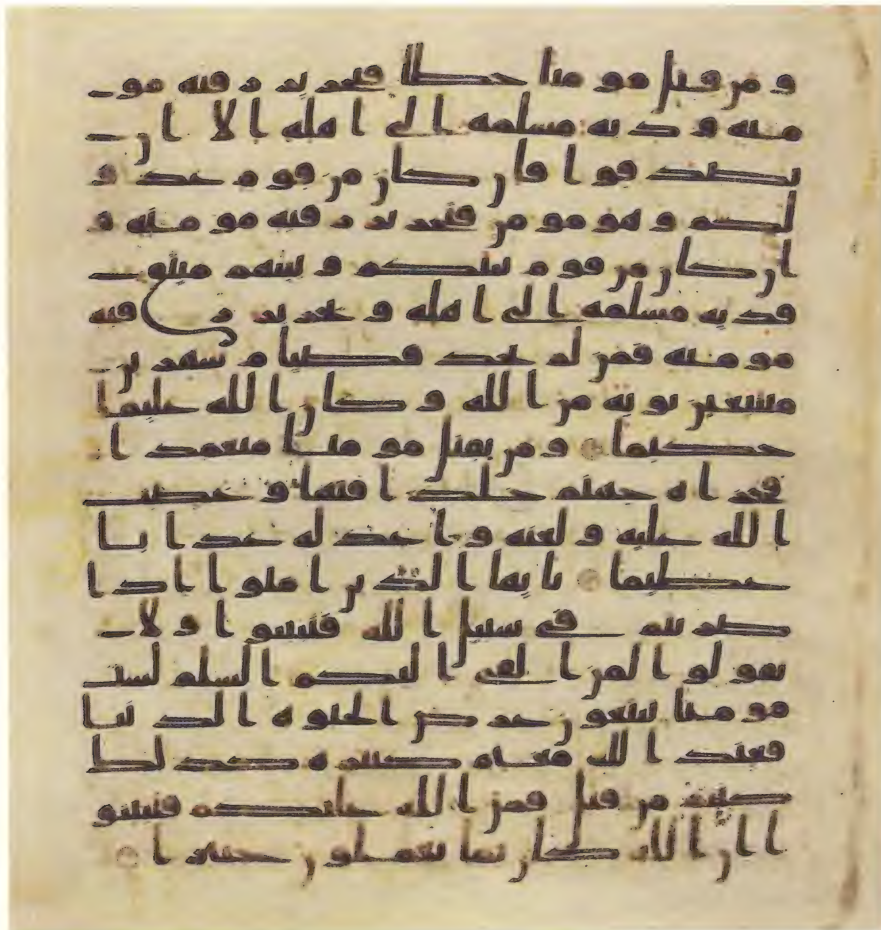 ومن قتل مومنا خطا فتحرير رقبه مو
منه وديه مسلمه الى اهله الا ان
يصدقوا فان كان من قوم عدو
لكم وهو مومن فتحرير رقبه مومنه و
ان كان من قوم بينكم وبينهم ميثق
فديه مسلمه الى اهله وتحرير رقبه
مومنه فمن لم يجد فصيام شهرين
متتبعين توبه من الله وكان الله عليما
حكيما ومن يقتل مومنا متعمدا
فجزاه جهنم خلدا فيها وغضب
الله عليه ولعنه واعد له عذابا
عظيما يايها الذين امنوا اذا
ضربتم في سبيل الله فتبينوا ولا
تقولوا لمن القى اليكم السلم لست
مومنا تبتغون عرض الحيوه الدنيا
فعند الله مغانم كثيره كذلك
كنتم من قبل فمن الله عليكم فتبينو
ا ان الله كان بما تعملون خبيرا